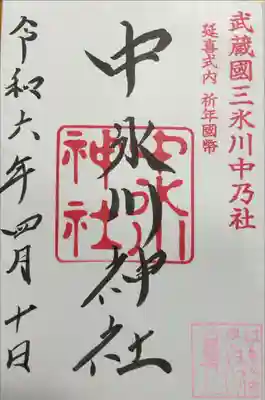 武蔵國三氷川中乃社
延喜式内 祈年國幣
中氷川神社
中氷川
神社
令和六年四月十日